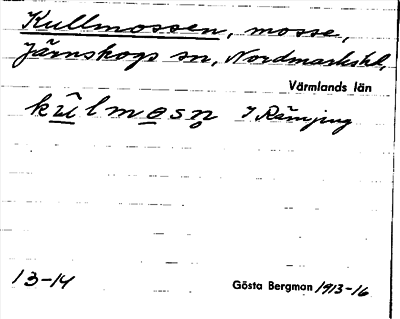 Kullmossen, mosse,
Järnskogs sn, Nordmarks hd,
Värmlands län
kûlmosn̥
13-14
Gösta Bergman 1913-16